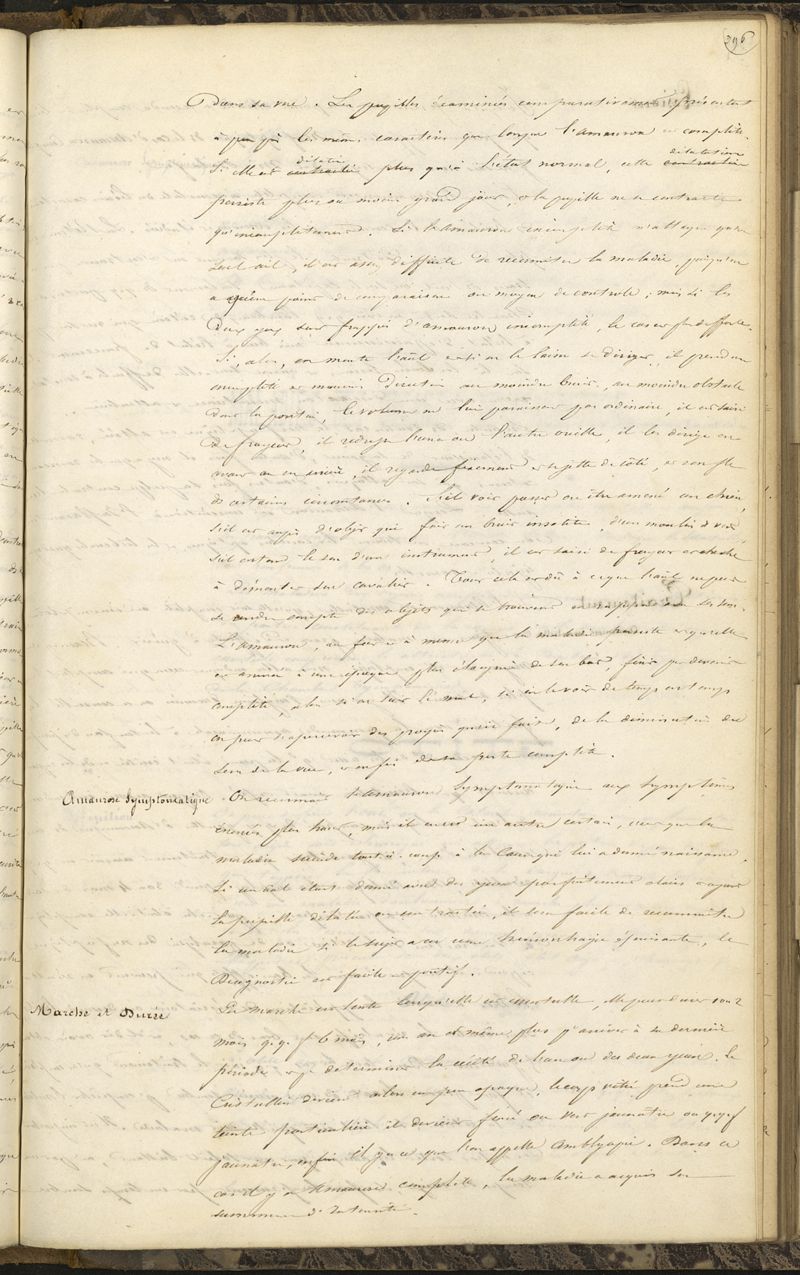 296
Dans sa vue. Les pupilles éxaminées comparativement présentent
à peu près les mêmes caractères que lorsque l'amaurose est complète.
Si elle est contractée dilatée plus qu'à l'état normal, cette contraction dilatation
persiste plus ou moins grand jour, et la pupille ne se contracte
qu'incomplètement. Si l'amaurose incomplète n'attaque qu'un
seul œil, il est assez difficile de reconnaitre la maladie, puisqu'on
a qu'un point de comparaison ou moyen de controle; mais si les
Deux yeux sont frappés d'amaurose incomplète, le cas est plus difficile.
Si, alors, on monte l'animal et si on le laisse se diriger, il prend un
mouvement Direction au moindre bruit, au moindre obstacle
dont la position, le volume ne lui paraissent pas ordinaire, il est saisi
de frayeur, il redresse l'une ou l'autre oreille, il les dirige en
avant ou en arrière, il regarde fixement et se jette de côté,
de certaines circonstances. S'il voit passer ou être amené un chien,
s'il est auprès d'objets qui font un bruit insolite, d'un moulin à vent,
s'il entend le son d'un instrument, il est saisi de frayeur et cherche
à démonter son cavalier. Tout cela est dû à ce que l'animal ne peut
se rendre compte des objets qui se trouvent en rapport avec les sens.
L'amaurose, au fur et à mesure que la maladie persiste et qu'elle
est arrivée à une époque plus éloignée de son but, finit par devenir
complète, alors si on suit le mal, si on le voit de temps en temps
on peut s'apercevoir des progrès qu'elle fait, de la diminution du
sens de la vue, et enfin de sa perte complète.
Amaurose Symptomatique On reconnait l'amaurose Symptomatique aux symptômes
énoncés plus haut, mais il en est un autre certain, c'est que la
maladie succède tout à coup à la cause qui lui a donné naissance.
Si un animal étant donné avec des yeux parfaitement clairs et ayant
la pupille dilatée ou contractée, il sera facile de reconnaitre
la maladie si le sujet a eu une hémorrhagie épuisante, le
Diagnostic est facile et positif.
Marche et Durée La marche est lente lorsqu'elle est essentielle, elle peut durer 1 ou 2
mois q.q.f. 6 mois, un an et même plus p. arriver à sa dernière
période et p. déterminer la cécité de l'un ou des deux yeux. Le
Cristallin devient alors un peu opaque, le corps vitré prend une
teinte particulière il devient foncé ou vert jaunatre ou q.q.f.
jaunatre, enfin il y a ce que l'on appelle amblyopie. Dans ce
cas il y a amaurose complète, la maladie a acquis son
summum d'intensité.